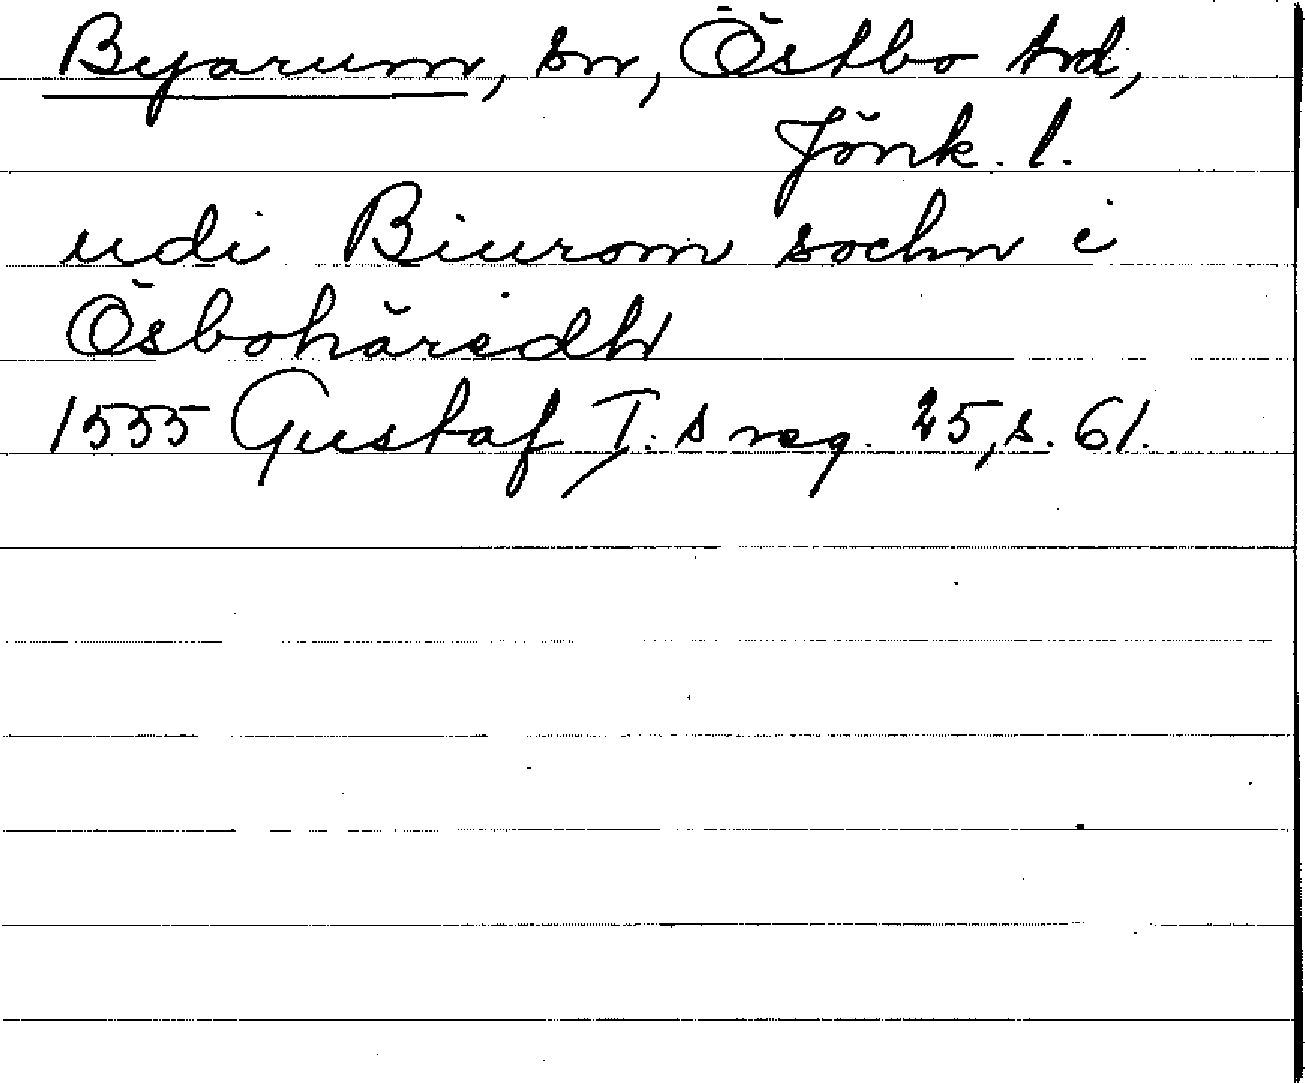 Byarum, sn, Östbo hd,
Jönk. l.
udi Biurom sochn i
Ösbohäredh
1555 Gustaf I:s reg. 25, s. 61.